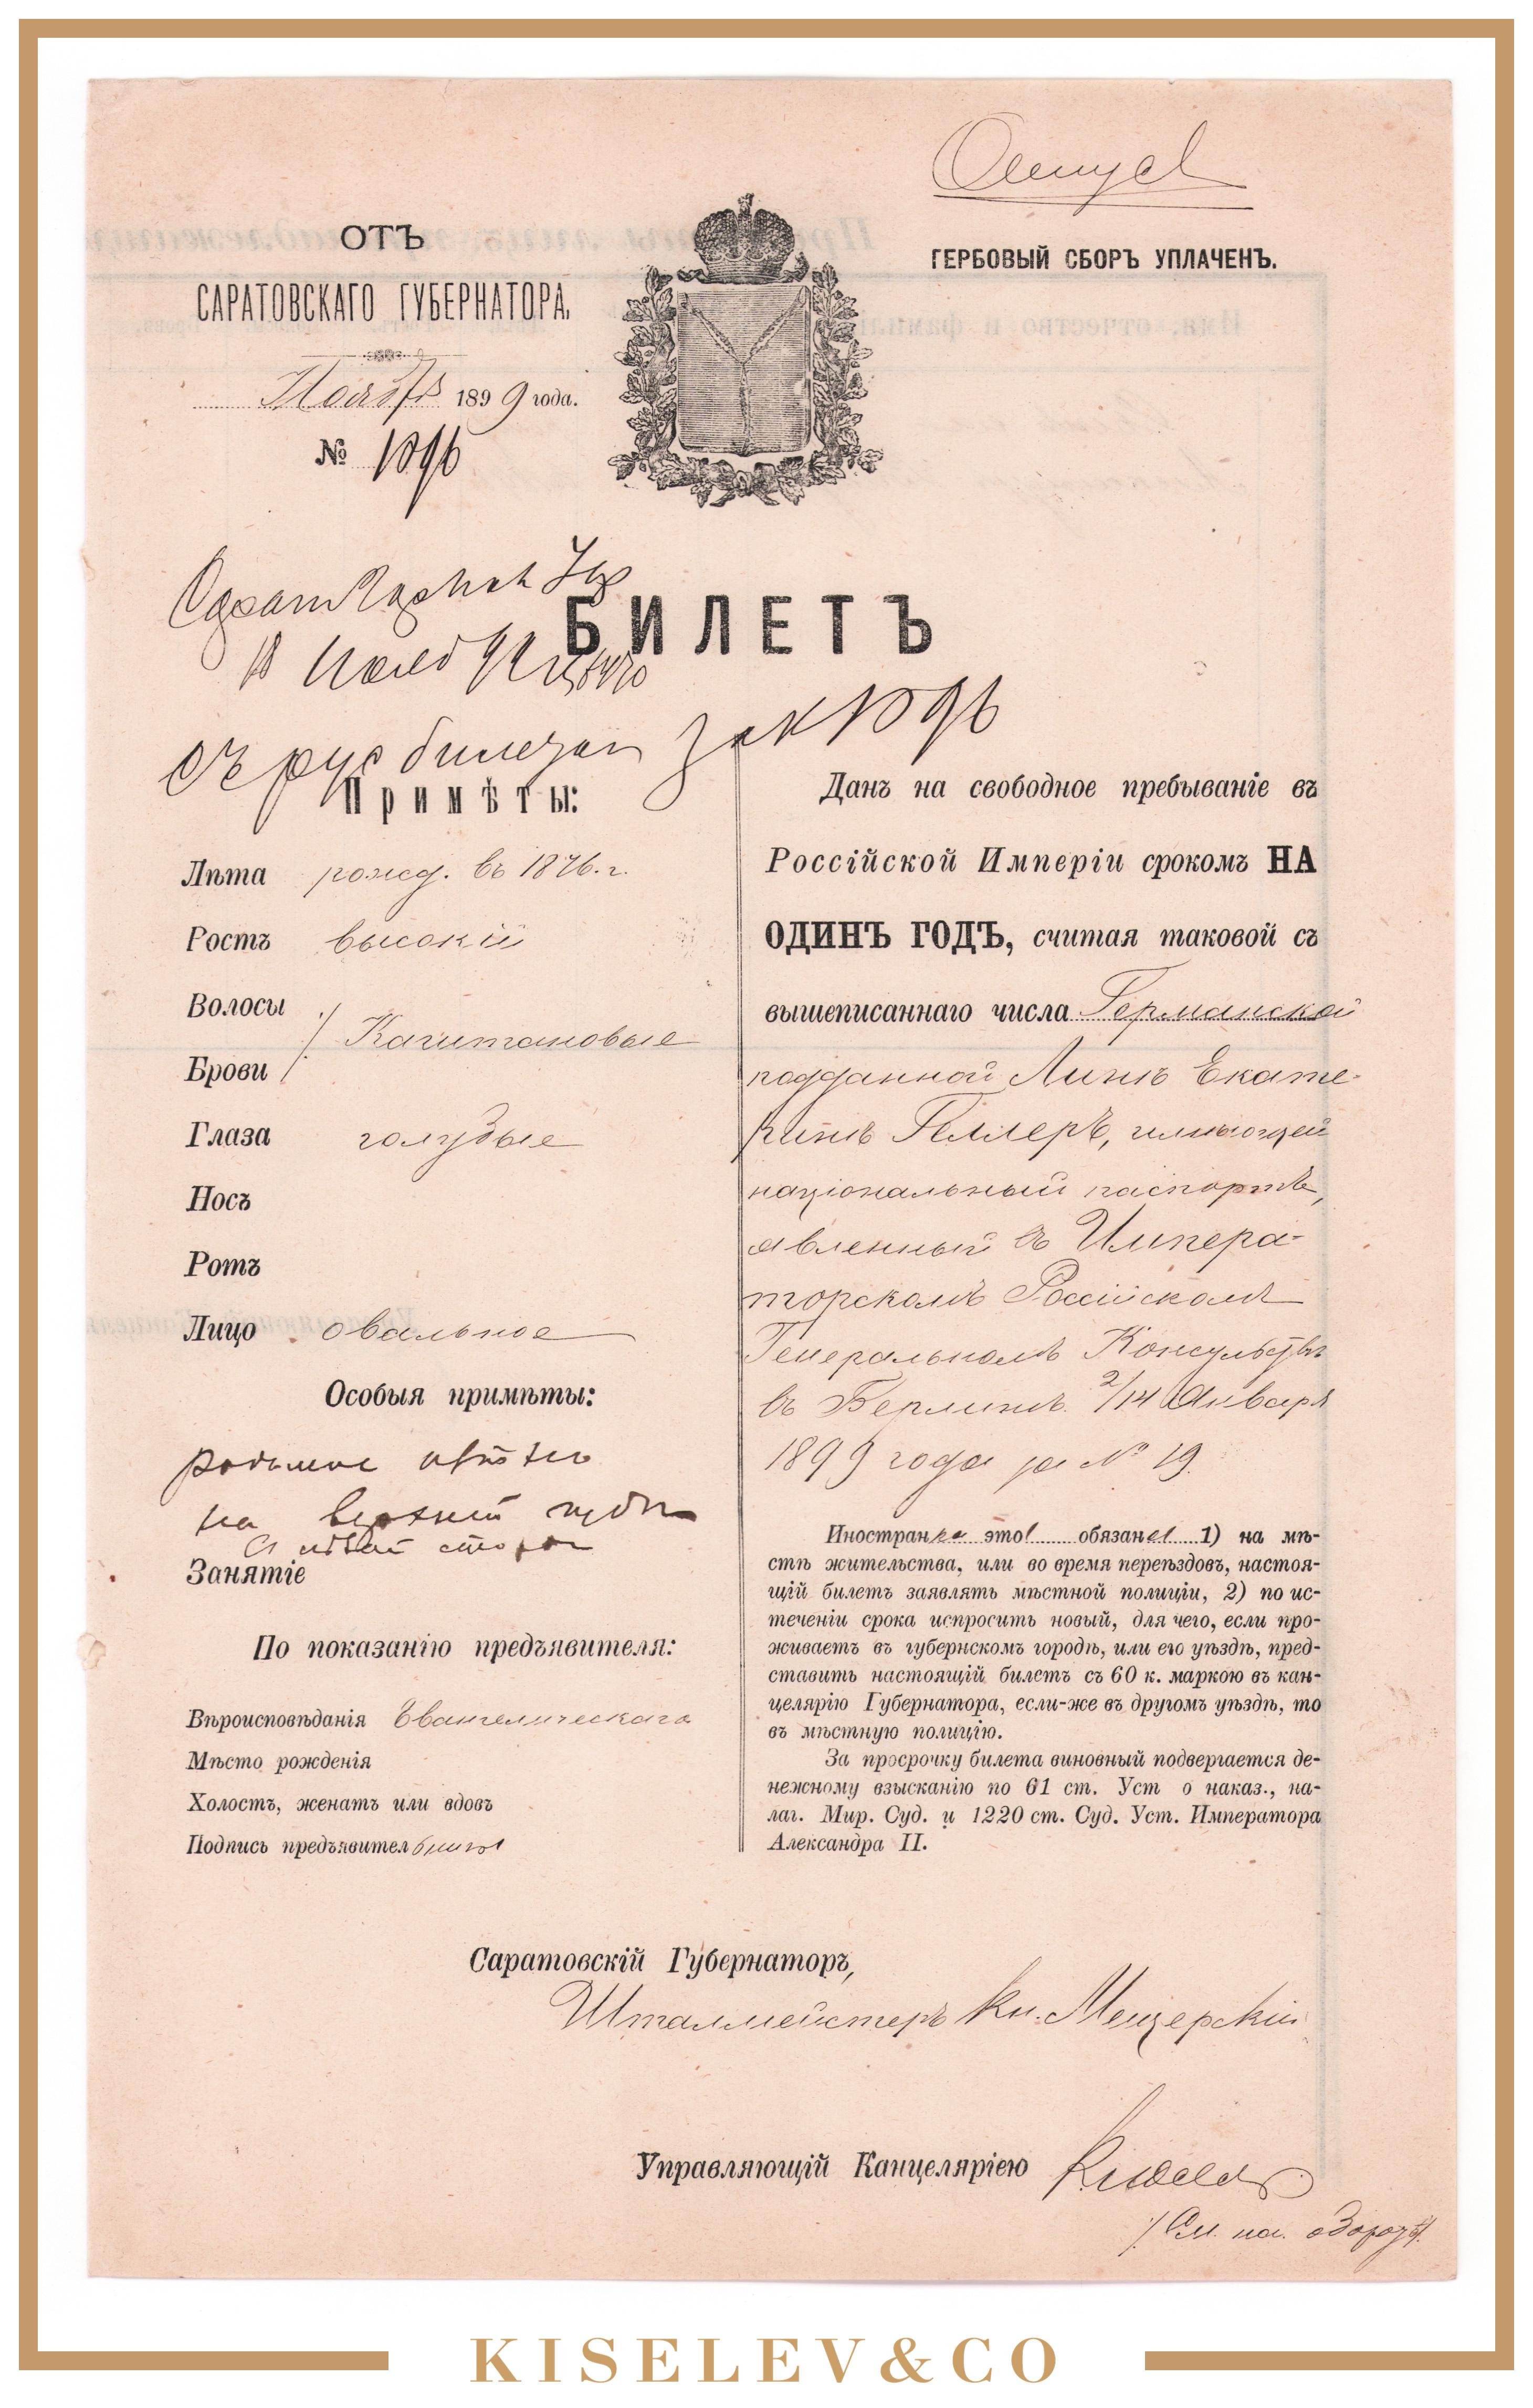 Отпускъ
ОТЪ
САРАТОВСКАГО ГУБЕРНАТОРА.
ГЕРБОВЫЙ СБОРЪ УПЛАЧЕНЪ.
Ноября 1899 года.
№ 1896
БИЛЕТЪ
18 Нояб 99
съ рус за №
Примѣты:
Лѣта рожд. въ 1876. г.
Ростъ высокій
Волосы
Брови
Каштановые
Глаза голубые
Носъ
Ротъ
Лицо овальное
Особыя примѣты:
родимое
на верхней губѣ
съ лѣвой
Занятіе
По показанію предъявителя:
Вѣроисповѣданія Евангелическаго
Мѣсто рожденія
Холостъ, женатъ или вдовъ
Подпись предъявительницы
Данъ на свободное пребываніе въ
Россійской Имперіи срокомъ НА
ОДИНЪ ГОДЪ, считая таковой съ
вышеписаннаго числа Германской
подданной Линѣ Екате-
ринѣ Геллеръ, имѣющей
національный паспортъ,
явленный въ Импера-
торскомъ Россійскомъ
Генеральномъ Консульствѣ
въ Берлинѣ 2/14 Января
1899 года за № 19.
Иностранка эта обязана 1) на мѣ-
стѣ жительства, или во время переѣздовъ, настоя-
щій билетъ заявлять мѣстной полиціи, 2) по ис-
теченіи срока испросить новый, для чего, если про-
живаетъ въ губернскомъ городѣ, или его уѣздѣ, пред-
ставить настоящій билетъ съ 60 к. маркою въ кан-
целярію Губернатора, если-же въ другомъ уѣздѣ, то
въ мѣстную полицію.
За просрочку билета виновный подвергается де-
нежному взысканію по 61 ст. Уст о наказ., на-
лаг. Мир. Суд. и 1220 ст. Суд. Уст. Императора
Александра II.
Саратовскій Губернаторъ,
Шталмейстеръ Кн. Мещерскій
Управляющій Канцеляріею
/См. на оборотѣ/.
KISELEV&CO